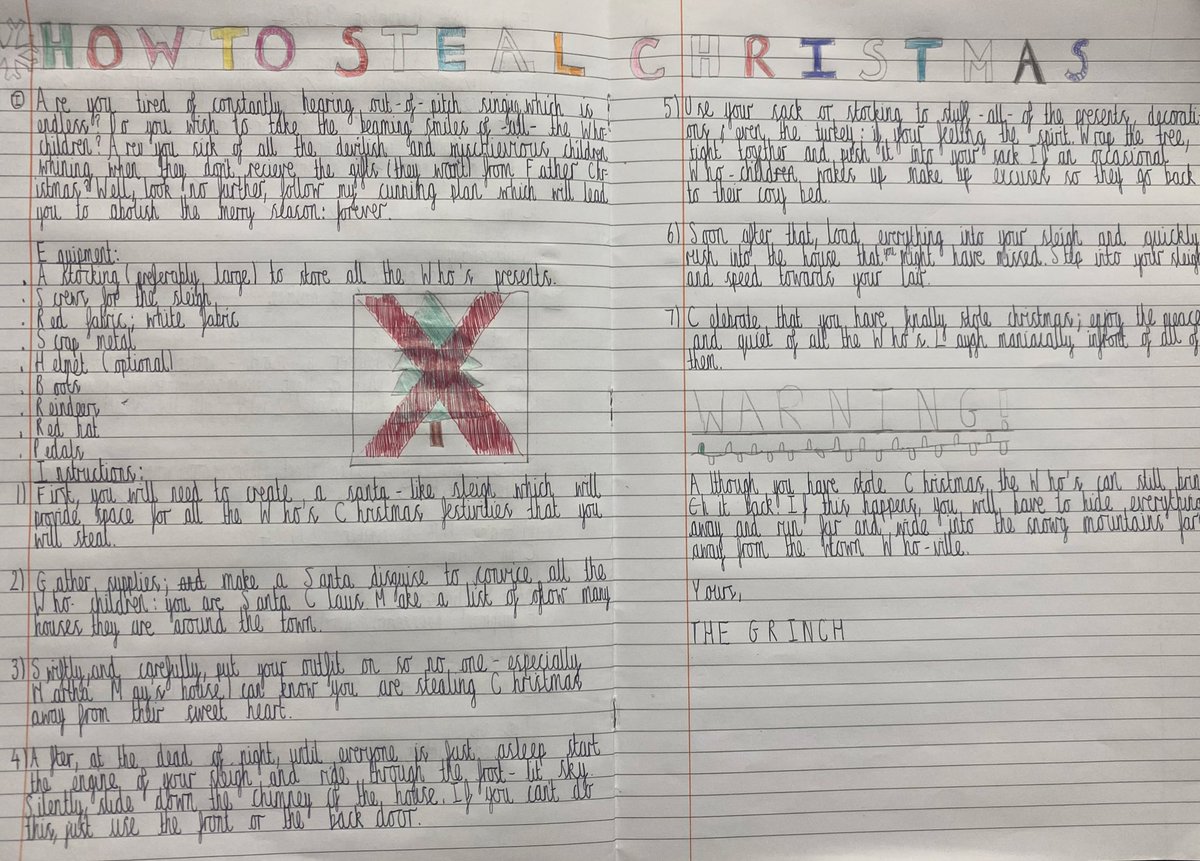 HOW TO STEAL CHRISTMAS
Are you tired of constantly hearing out-of-pitch singing which is
endless? Do you wish to take the beaming smiles of -all- the Who-
children? Are you sick of all the devilish and mischievious children
whining when they don't recieve the gifts (they won't) from Father Chr-
istmas? Well, look no further, follow my cunning plan which will lead
you to abolish the merry season: forever.
Equipment:
. A stocking (preferably large) to store all the Who's presents.
. Screws for the sleigh
. Red fabric; white fabric
. Scrap metal
. Helmet (optional)
. Boots
. Reindeers
. Red hat
. Pedals
Instructions:
1) First, you will need to create a santa-like sleigh which will
provide space for all the Who's Christmas festivities that you
will steal.
2) Gather supplies; and make a Santa disguise to convice all the
Who- children: you are Santa Claus Make a list of how many
houses they are around the town.
3) Swiftly, and carefully, put your outfit on so no one - especially
Martha May's house) can know you are stealing Christmas
away from their sweet heart.
4) After, at the dead of night, until everyone is fast asleep start
the engine of your sleigh and ride through the frost-lit sky
Silently, slide down the chimney of the house. If you cant do
this, just use the front or the back door.
5) Use your sack or stocking to stuff -all- of the presents, decorati-
ons & even the turkey; if your feeling the spirit. Wrap the tree,
tight together and push it into your sack If an occasional
Who-children, wakes up make up excuses so they go back
to their cosy bed.
6) Soon after that, load everything into your sleigh and quickly
rush into the house that you might have missed. Step into your sleigh
and speed towards your lair.
7) Celebrate that you have finally stole christmas; enjoy the peace
and quiet of all the Who's Laugh maniacally infront of all of
them.
WARNING!
Although you have stole Christmas, the Who's can still brin-
g it back! If this happens, you will have to hide everything
away and run far and wide into the snowy mountains far
away from the town Who-ville.
Yours,
THE GRINCH